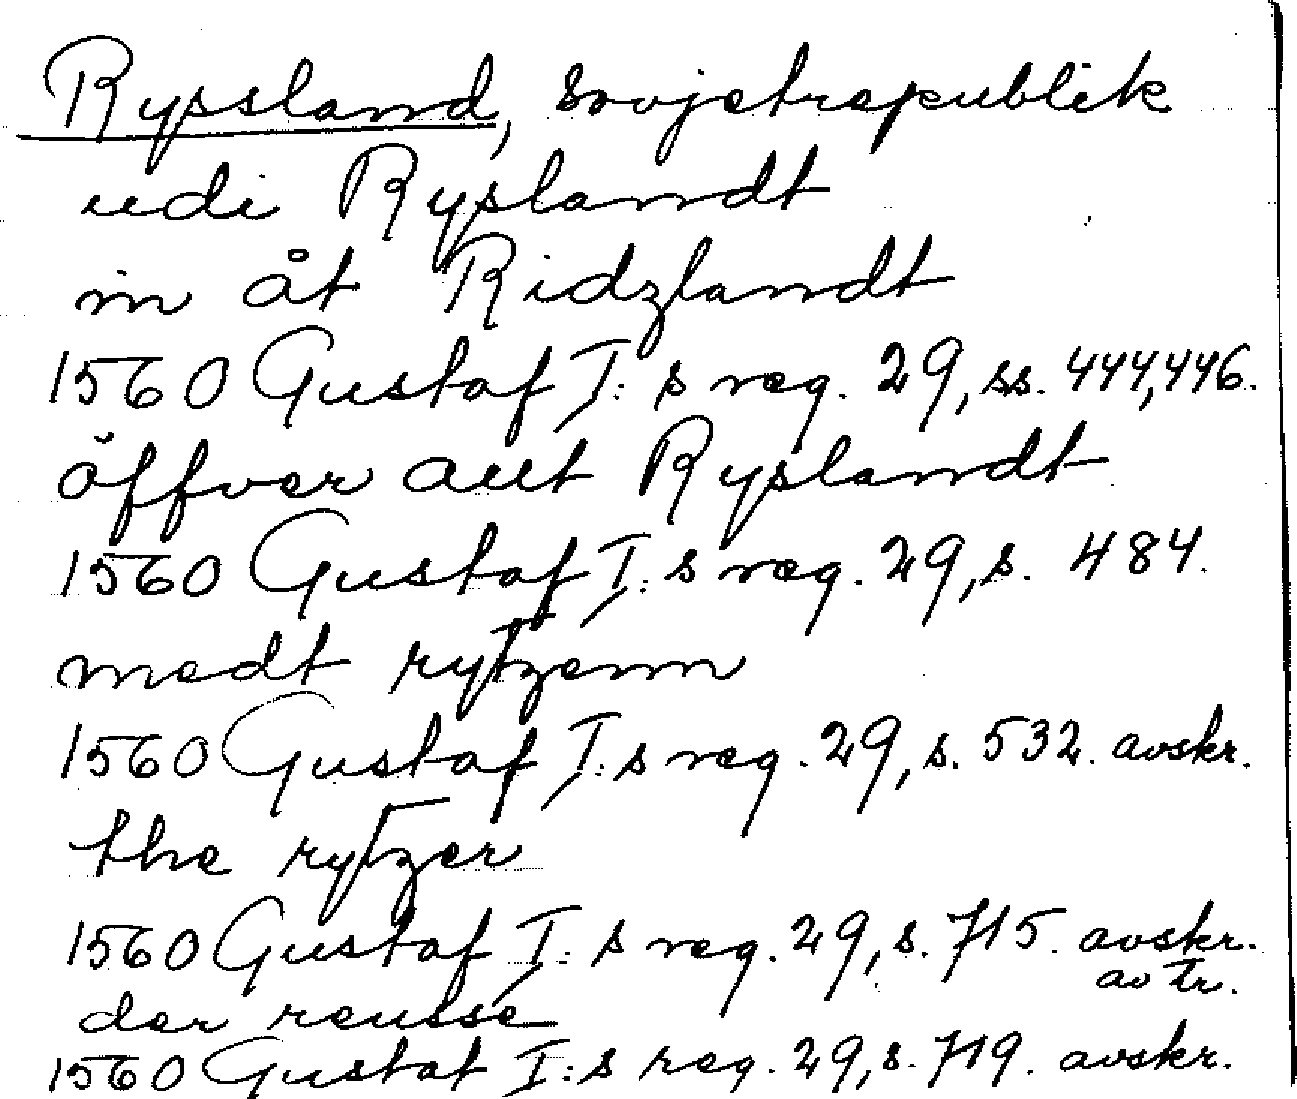 Ryssland, Sovjetrepublik
udi Ryslandt
in åt Ridzlandt
1560 Gustaf I:s reg. 29, ss. 444, 446.
öffver allt Ryslandt
1560 Gustaf I:s reg. 29, s. 484.
medt rytzenn
1560 Gustaf I:s reg. 29, s. 532. avskr.
the rytzer
1560 Gustaf I:s reg. 29, s. 715. avskr.
av Tr.
der reusse
1560 Gustaf I:s reg. 29, s. 719. avskr.